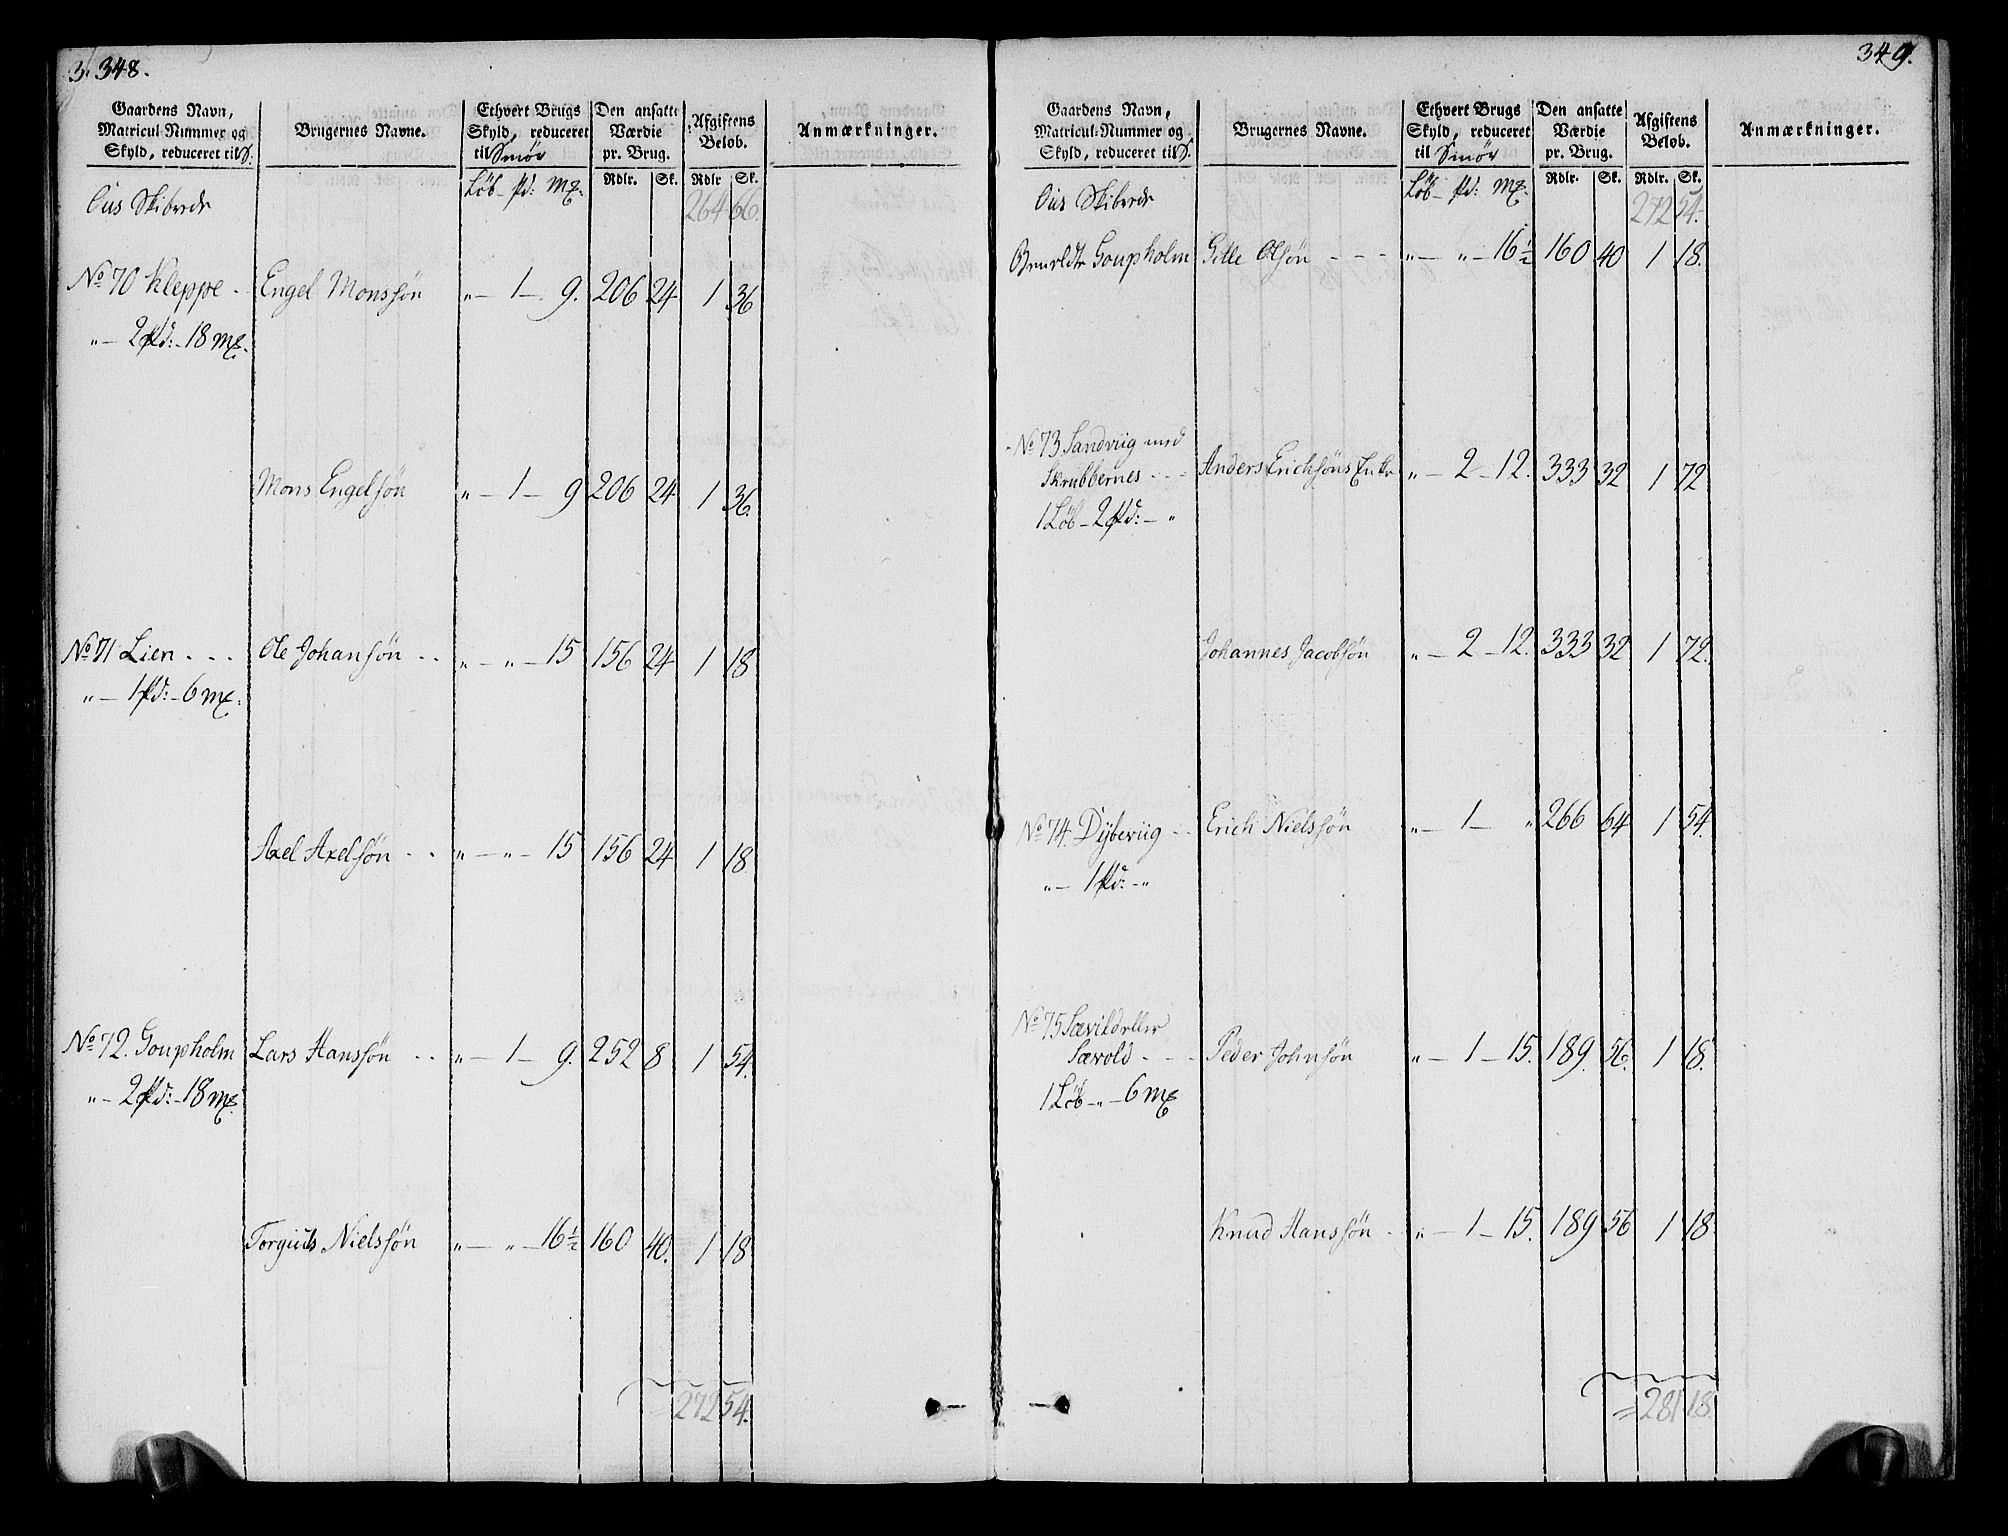 348.
Gaardens Navn, Matricul-Nummer og Skyld, reduceret til S. | Brugernes Navne. | Ethvert Brugs Skyld, reduceret til Smör | Den ansatte Værdie pr. Brug. | Afgiftens Beløb. | Anmærkninger.
Løb - pd: - mk. | Rdlr. | Sk. | Rdlr | Sk.
Ous Skibrede 264 66.
No 70 Kleppe Engel Monssøn „ - 1 - 9. 206 24 1 36
„ - 2 pd: - 18 mk.
Mons Engelsøn „ - 1 - 9 206 24 1 36.
No 71 Lien . . . Ole Johansøn . . „ - „ - 15 156 24 1 18
„ - 1 pd: - 6 mk.
Axel Axelsøn . . „ - „ - 15 156 24 1 18
No 72. Goupholm Lars Hanssøn . . „ - 1 - 9. 252 8 1 54.
„ - 2 pd: - 18 mk.
Torguls Nielssøn „ - „ - 16½ 160 40. 1 18
272 54.
349.
Gaardens Navn, Matricul-Nummer og Skyld, reduceret til S. | Brugernes Navne. | Ethvert Brugs Skyld, reduceret til Smör | Den ansatte Værdie pr. Brug. | Afgiftens Beløb. | Anmærkninger.
Løb - pd: mk. | Rdlr. | Sk. | Rdlr. | Sk.
Ous Skibrede 272 54.
Goupholm Gitle Olsøn - - - „ - „ - 16½ 160 40 1 18.
No 73 Sandviig med
Skrubbernes - - - Anders Erichsøns Enke „ - 2 - 12. 333 32 1 72
1 Løb - 2 pd: - „
Johannes Jacobsøn „ - 2 - 12. 333 32 1 72.
No 74. Dybeviig - - Erich Nielssøn „ - 1 - „ 266 64 1 54.
„ - 1 pd: - „
No 75 Sævild eller
Sævold - - - Peder Johnsøn „ - 1 - 15. 189 56. 1 18.
1 Løb - „ - 6 mk
Knud Hanssøn - „ - 1 - 15. 189 56 1 18.
281 18.